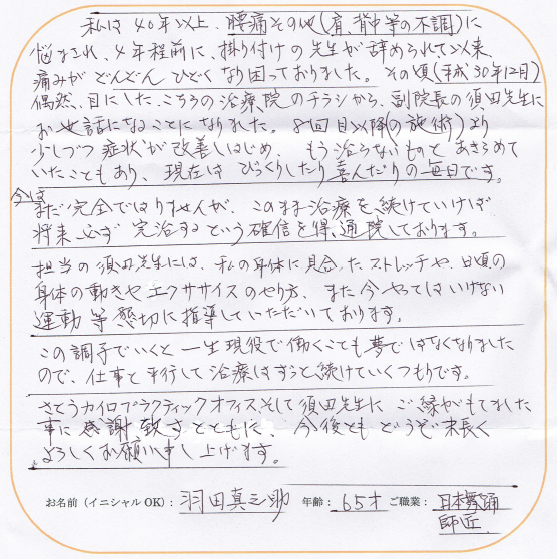 私は40年以上、腰痛その他(肩、背中等の不調)に
悩まされ、4年程前に、掛り付けの先生が辞められて以来
痛みがどんどんひどくなり困っておりました。その頃(平成30年12月)
偶然、目にしたこちらの治療院のチラシから、副院長の須田先生に
お世話になることになりました。8回目以降(の施術)より
少しづつ症状が改善しはじめ、もう治らないものとあきらめて
いたこともあり、現在はびっくりしたり喜んだりの毎日です。
今は
まだ完全ではりませんが、このまま治療を続けていけば
将来必ず完治するという確信を得、通院しております。
担当の須田先生には、私の身体に見合ったストレッチや、日頃の
身体の動きやエクササイズのやり方、また今やってはいけない
運動等懇切に指導していただいております。
この調子でいくと一生現役で働くことも夢ではなくなりました
ので、仕事と平行して治療はずっと続けていくつもりです。
さとうカイロプラクティックオフィスそして須田先生にご縁がもてました
事に感謝致すとともに、今後ともどうぞ末長く
よろしくお願い申し上げます。
お名前(イニシャルOK):羽田真之助 年齢:65才 ご職業:日本舞踊
師匠